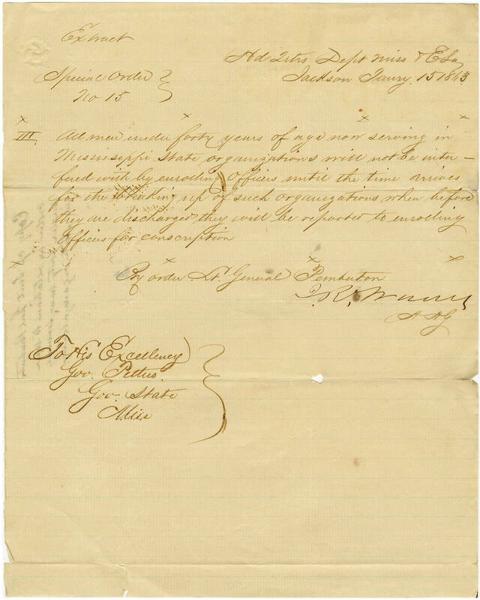 Extract
Hd Qtrs Dept Miss & E La
Jackson Jany. 15 1863
Special Order
No 15
x x x x
III. All men under forty years of age now serving in
Mississippi State organizations will not be inter-
fered with by enrolling Officers until the time arrives
for the breaking up of such organizations, when before
they are discharged, they will be reported to enrolling
Officers for conscription
x x x
By order Lt. General Pemberton
A A G
To His Excellency
Gov. Pettus
Gov. State
Miss